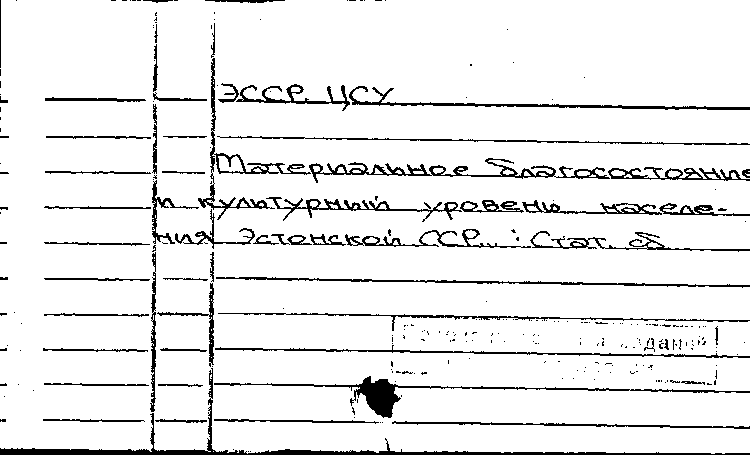 ЭССР. ЦСУ
Материальное благосостояние
и культурный уровень населе-
ния Эстонской ССР... : Стат. сб